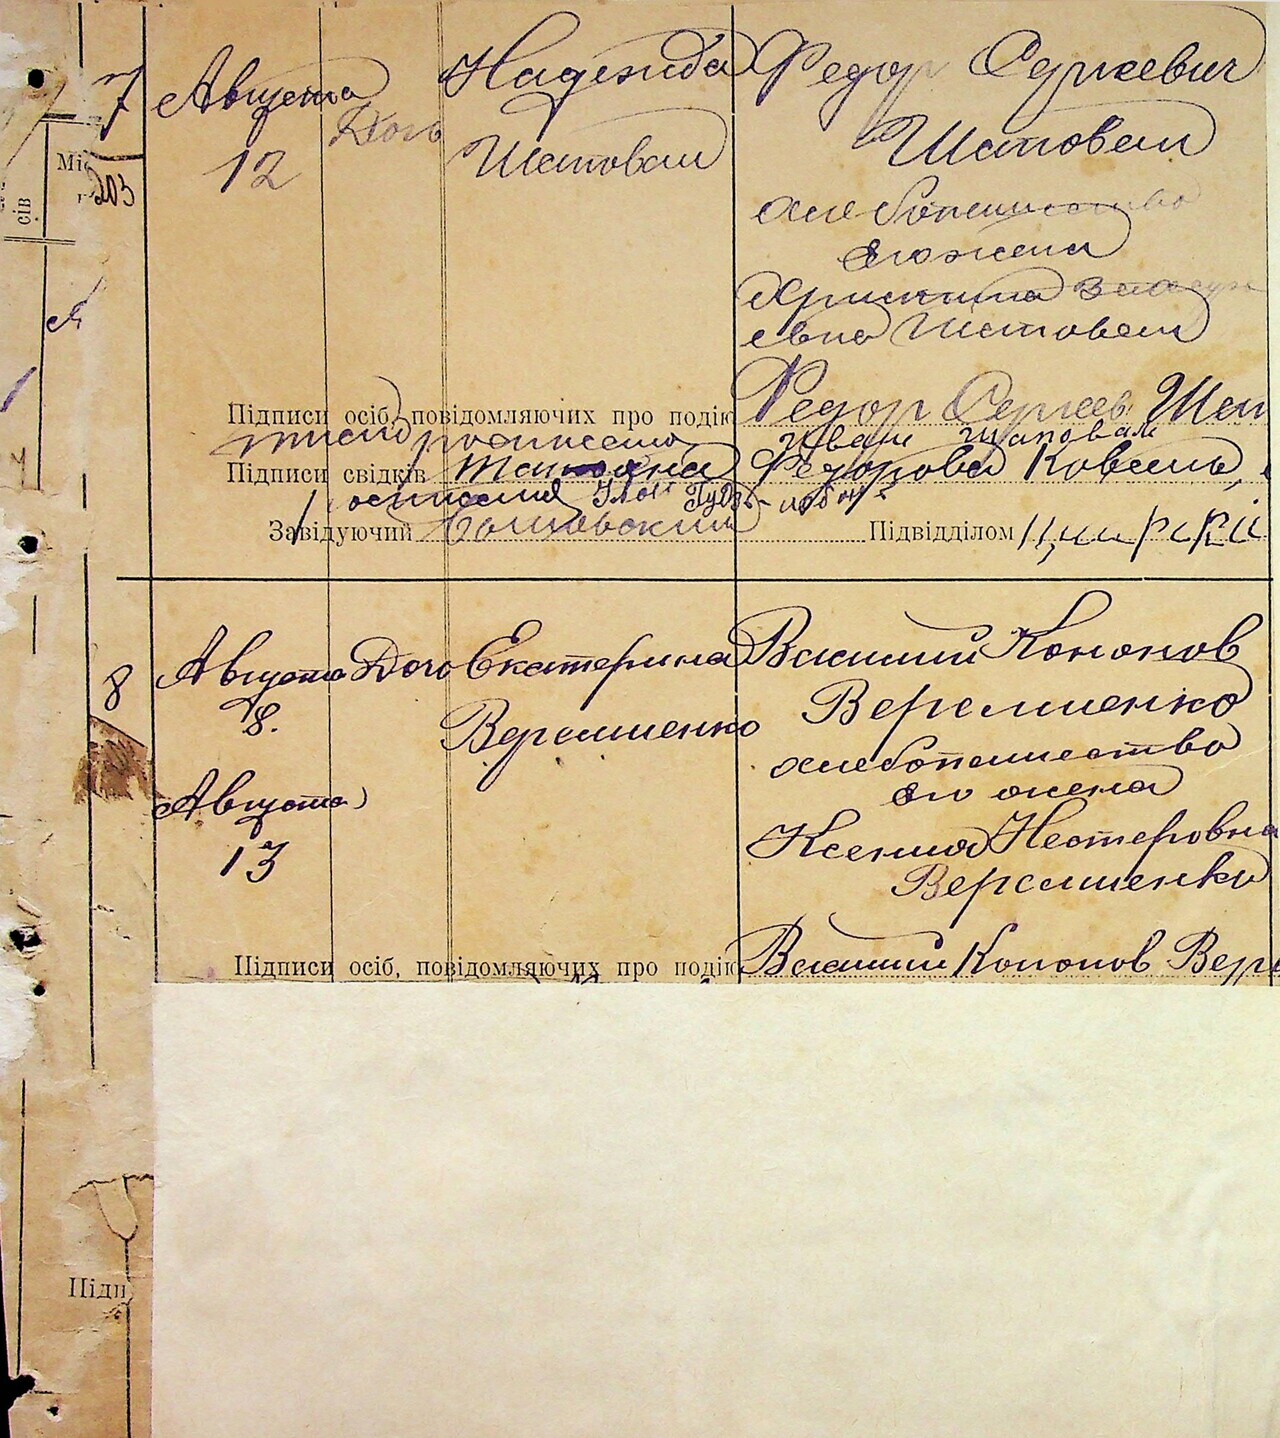 7
Августа
12
Дочь
Надежда
Шаповал
Федор Сергеевич
Шаповал
хлебопашество
его жена
Христина
евна Шаповал
203
Мі
сів
Підписи осіб, повідомляючих про подію Федор Сергеев Шап
Иван Шаповал
Підписи свідків Татьяна Федорова Коваль,
Завідуючий Підвідділом
8
Августа
8.
Августа
13
Дочь
Екатерина
Веремиенко
Василий Кононов
Веремиенко
хлебопашество
его жена
Ксения Нестеровна
Веремиенко
Підписи осіб, повідомляючих про подію Василий Кононов Вере
Підп